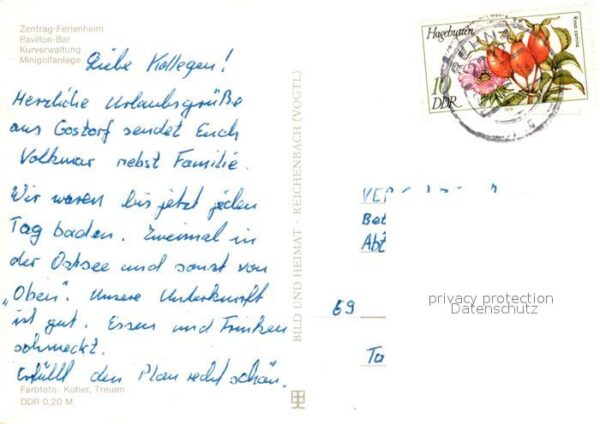 Zentrag-Ferienheim
Pavillon-Bar
Kurverwaltung
Minigolfanlage
Liebe Kollegen!
Herzliche Urlaubsgrüße
aus Gostorf sendet Euch
Volkmar nebst Familie.
Wir waren bis jetzt jeden
Tag baden. Zweimal in
der Ostsee und sonst von
„Oben". Unsere Unterkunft
ist gut. Essen und Trinken
schmeckt.
Erfüllt den Plan recht schön.
Farbfoto: Kober, Treuen
DDR 0,20 M
BILD UND HEIMAT · REICHENBACH (VOGTL)
Hagebutten
Rosa canina
10
DDR
REHNA
Bet
Abt
69
Ta
privacy protection
Datenschutz